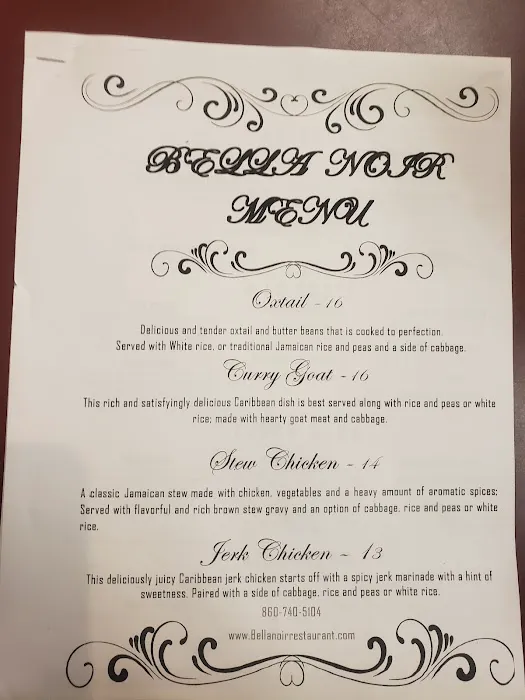 BELLA NOIR
MENU
Oxtail - 16
Delicious and tender oxtail and butter beans that is cooked to perfection.
Served with White rice, or traditional Jamaican rice and peas and a side of cabbage.
Curry Goat - 16
This rich and satisfyingly delicious Caribbean dish is best served along with rice and peas or white
rice; made with hearty goat meat and cabbage.
Stew Chicken - 14
A classic Jamaican stew made with chicken, vegetables and a heavy amount of aromatic spices;
Served with flavorful and rich brown stew gravy and an option of cabbage, rice and peas or white
rice.
Jerk Chicken ~ 13
This deliciously juicy Caribbean jerk chicken starts off with a spicy jerk marinade with a hint of
sweetness. Paired with a side of cabbage, rice and peas or white rice.
860-740-5104
www.Bellanoirrestaurant.com